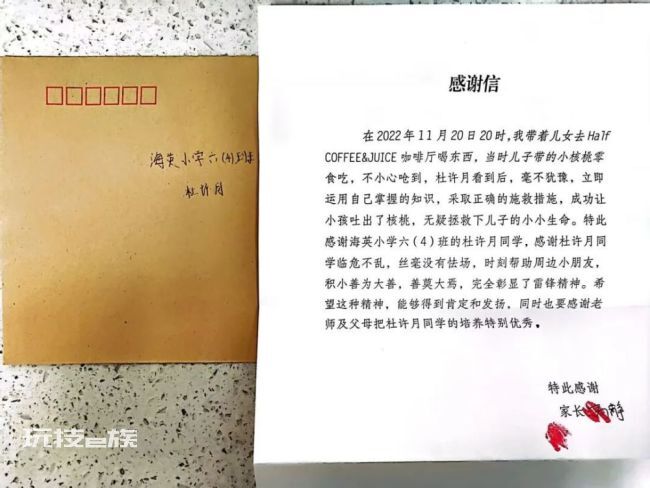 海英小学六(4)班
杜许月
感谢信
在2022年11月20日20时,我带着儿女去Half
COFFEE&JUICE咖啡厅喝东西，当时儿子带的小核桃零
食吃，不小心呛到，杜许月看到后，毫不犹豫，立即
运用自己掌握的知识，采取正确的施救措施，成功让
小孩吐出了核桃，无疑拯救下儿子的小小生命。特此
感谢海英小学六(4)班的杜许月同学，感谢杜许月同
学临危不乱，丝毫没有怯场，时刻帮助周边小朋友，
积小善为大善，善莫大焉，完全彰显了雷锋精神。希
望这种精神，能够得到肯定和发扬，同时也要感谢老
师及父母把杜许月同学的培养特别优秀。
特此感谢
家长
玩技e族